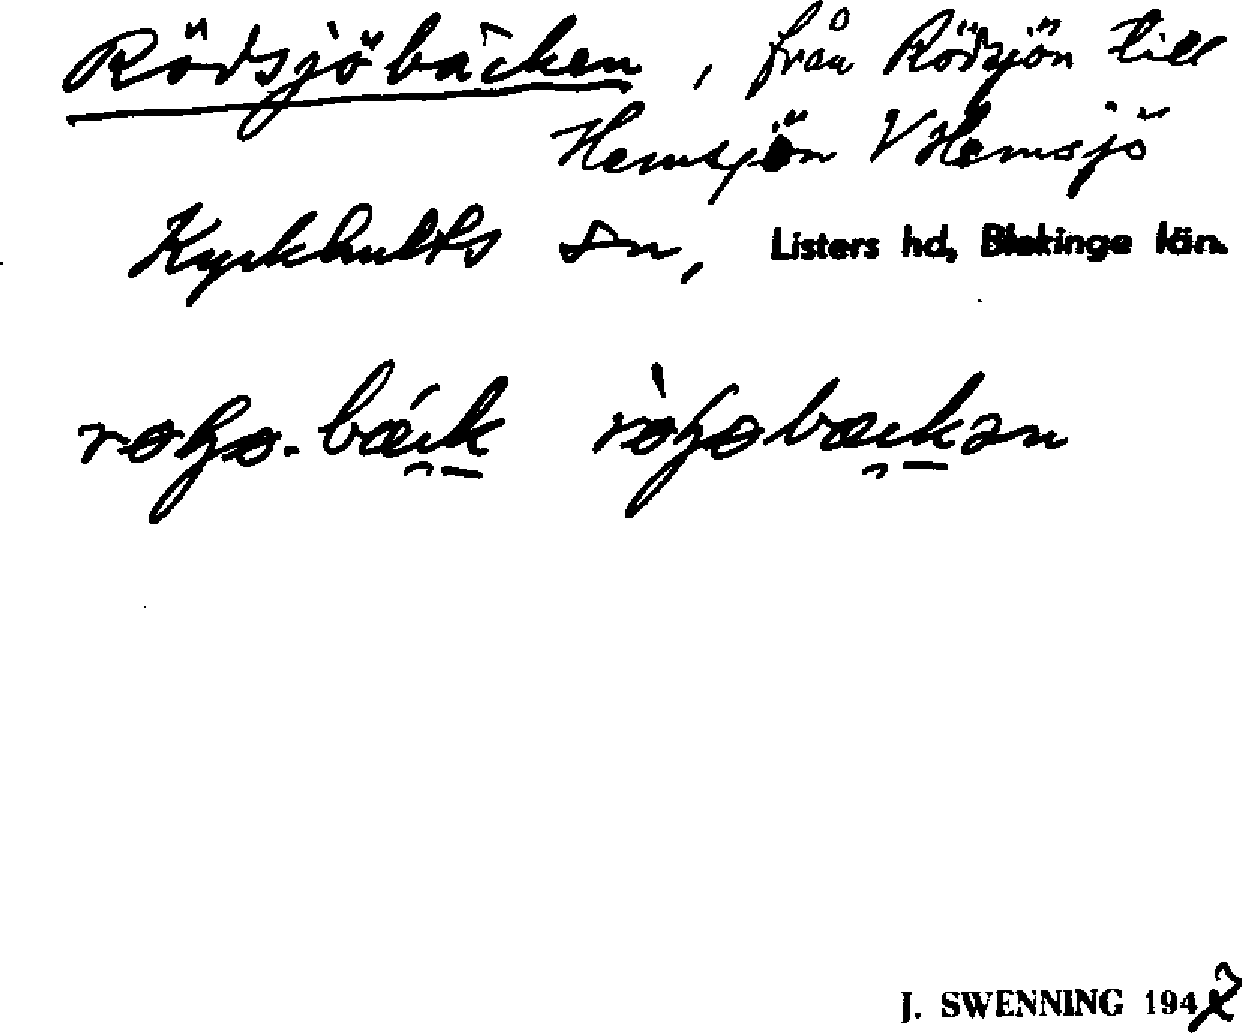 Rödsjöbäcken, från Rödsjön till
Hemsjön V Hemsjö
Kyrkhults sn, Listers hd, Blekinge län.
J. SWENNING 1947